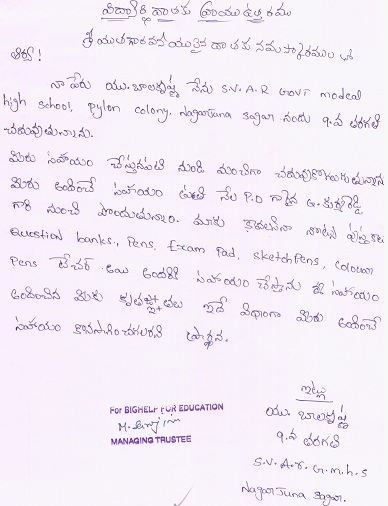 విద్యార్థి దాతకు వ్రాయు ఉత్తరము
శ్రీయుత గౌరవనీయులైన దాతకు నమస్కారములు
ఆర్యా!
నా పేరు యు. బాలకృష్ణ నేను S.V.A.R GOVT modeal
high school, pylon colony. Nagarjuna sagar నందు 9.వ తరగతి
చదువుతున్నాను.
మీరు సహాయం చేస్తున్నప్పటి నుండి మంచిగా చదువుకోగలుగుతున్నాను
మీరు అందించే సహాయం ప్రతి నెల P.D గారైన G.
గారి నుంచి పొందుతున్నాం. మాకు కావలసిన నోట్సు పుస్తకాలు
Question banks., Pens, Exam Pad, sketch Pens, colour
Pens టీచర్ అయి అందరికి సహాయం చేస్తాను ఈ సహాయం
అందించిన మీకు కృతజ్ఞతలు ఇదే విధంగా మీరు అందించే
సహాయం కొనసాగించగలరని ప్రార్థన.
ఇట్లు
యు. బాలకృష్ణ
9.వ తరగతి
S.V.A.r. G.m.h.s
Nagarjuna sagar.
For BIGHELP FOR EDUCATION
MANAGING TRUSTEE